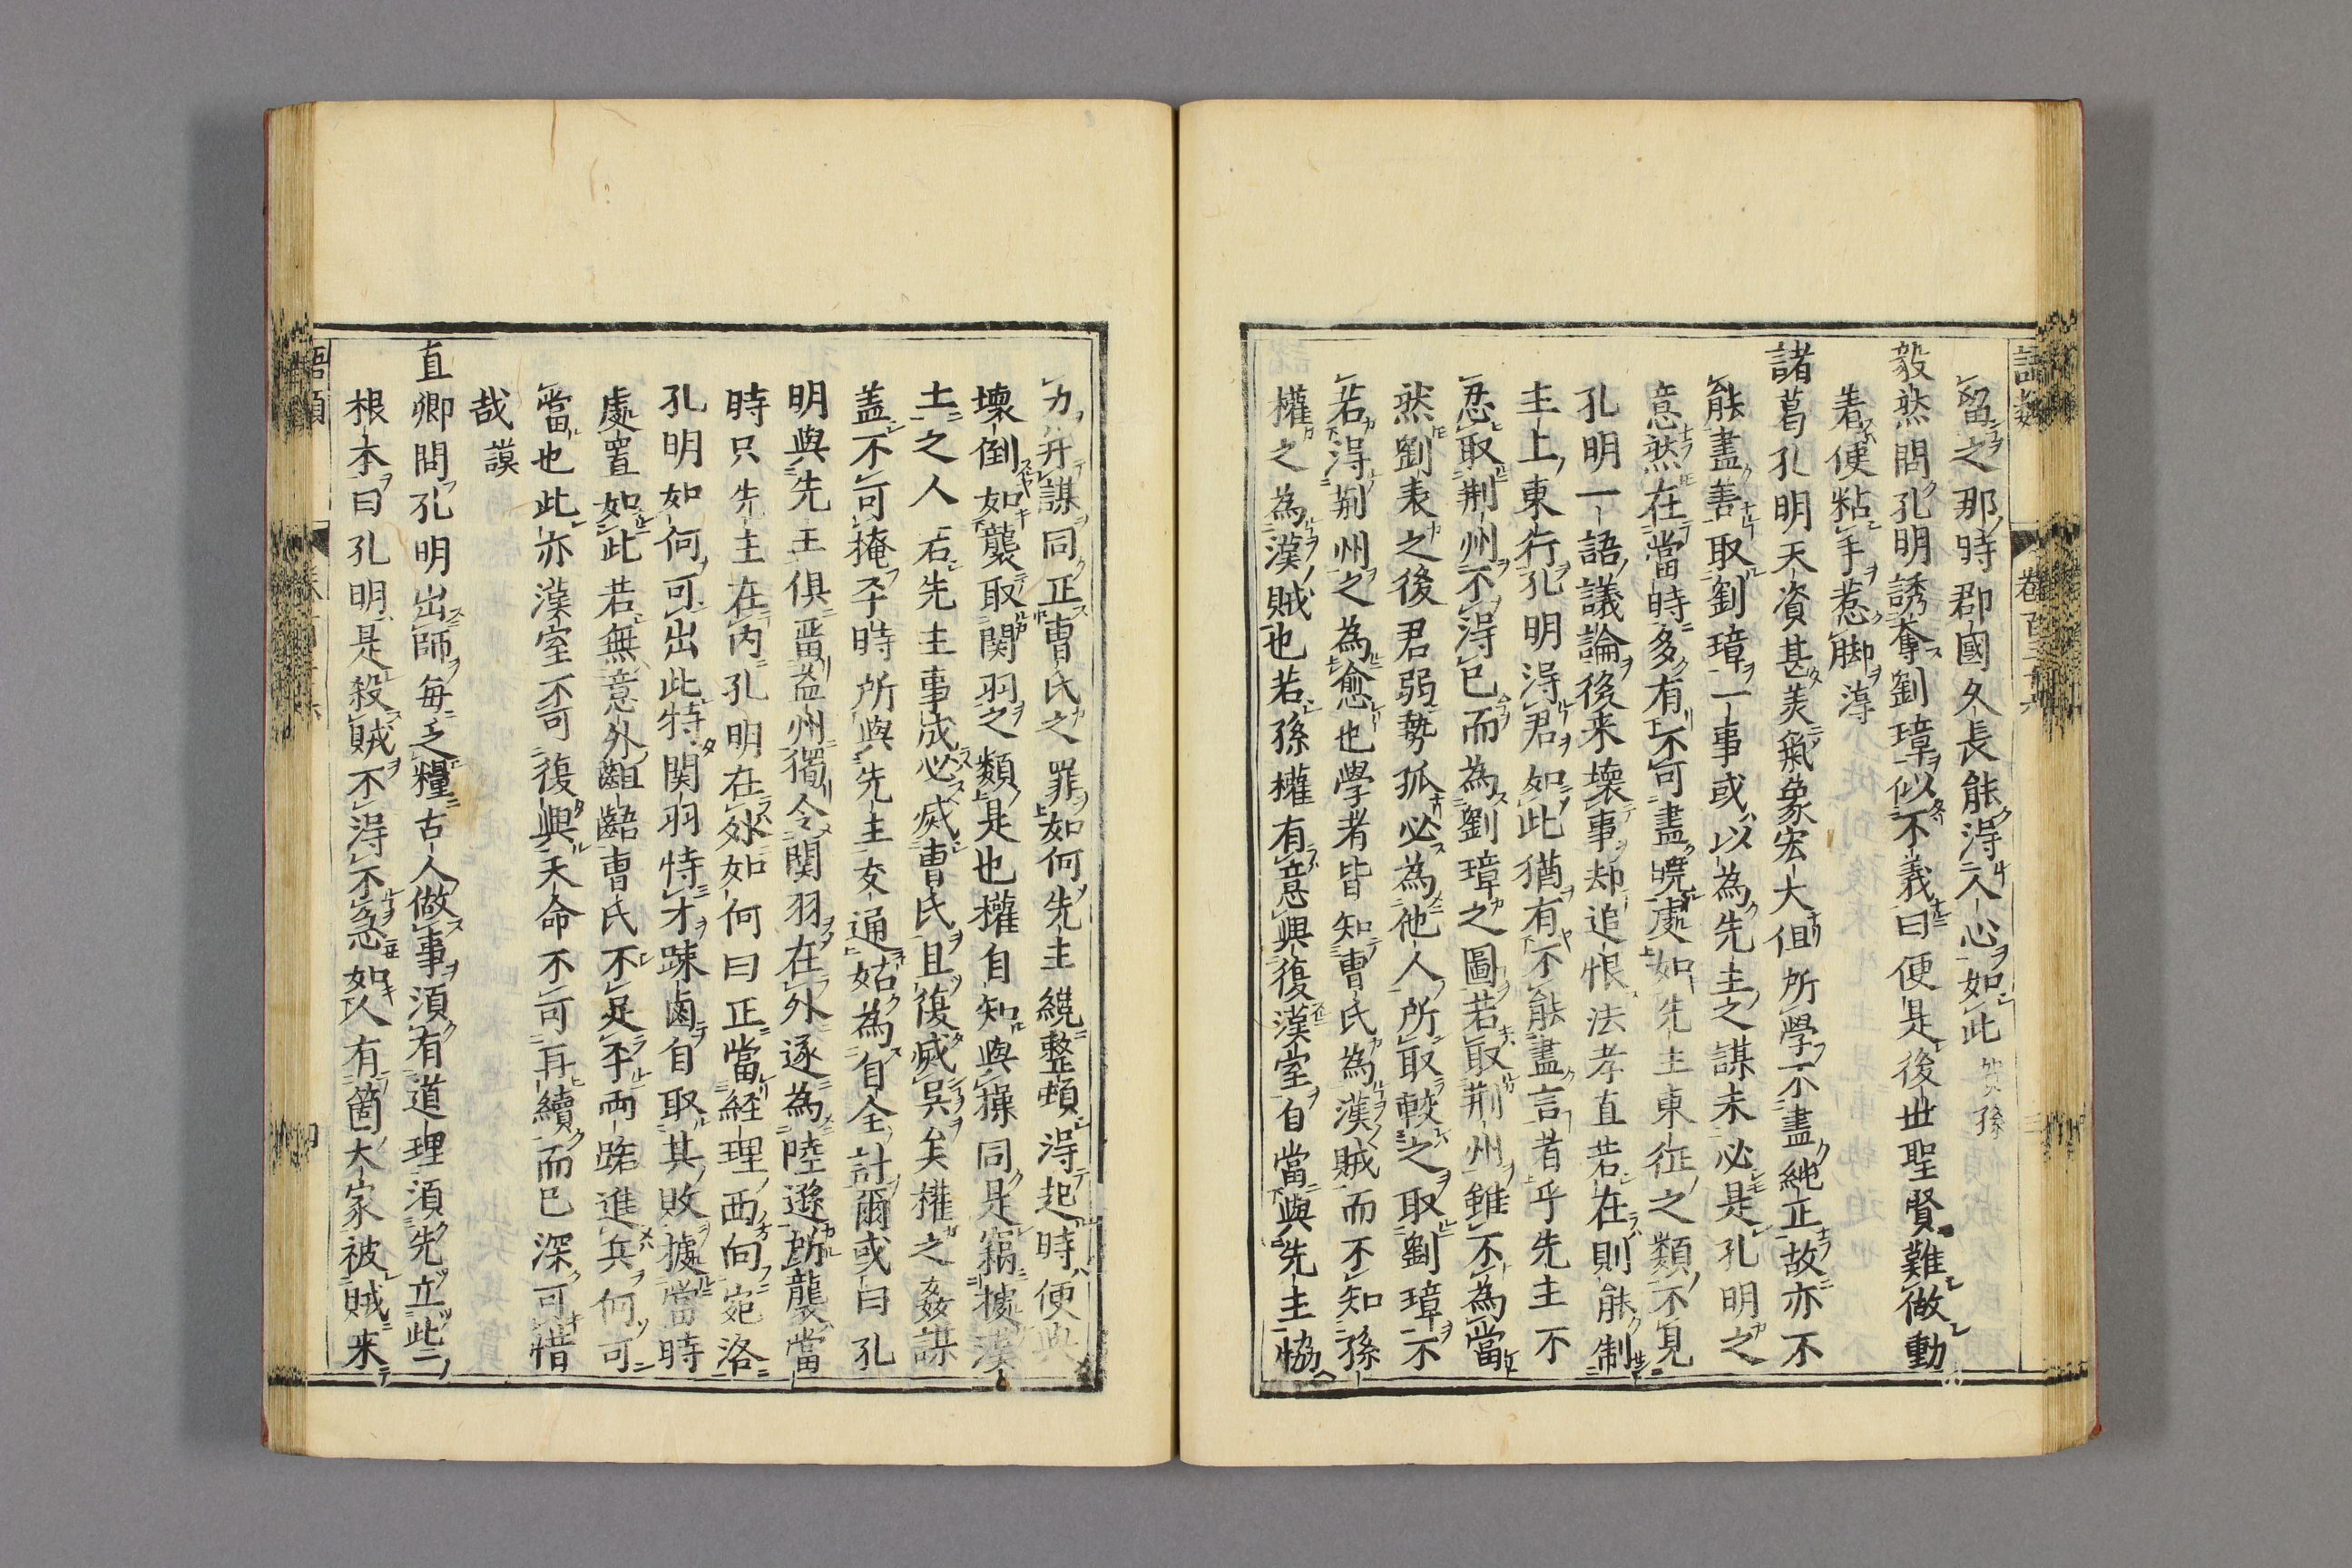 留之那時郡國久長能得人心如此 賀孫
毅然問孔明誘奪劉璋似不義曰便是後世聖賢難做動
着便粘手惹脚 淳
諸葛孔明天資甚美氣象宏大但所學不盡純正故亦不
能盡善取劉璋一事或以為先主之謀未必是孔明之
意然在當時多有不可盡曉處如先主東征之類不見
孔明一語議論後来壞事却追恨法孝直若在則能制
主上東行孔明得君如此猶有不能盡言者乎先主不
忍取荆州不得已而為劉璋之圖若取荆州雖不為當
然劉表之後君弱勢孤必為他人所取較之取劉璋不
若得荆州之為愈也學者皆知曹氏為漢賊而不知孫
權之為漢賊也若孫權有意興復漢室自當與先主恊
力并謀同正曹氏之罪如何先主纔整頓得起時便與
壞倒如襲取関羽之類是也權自知與操同是竊據漢
土之人若先主事成必㓕曹氏且復㓕吳矣權之姦謀
盖不可掩平時所與先主交通姑為自全計爾或曰孔
明與先主俱畱益州獨令関羽在外遂為陸遜所襲當
時只先主在内孔明在外如何曰正當経理西向宛洛
孔明如何可出此特関羽恃才踈鹵自取其敗據當時
處置如此若無意外齟齬曹氏不足平両路進兵何可
當也此亦漢室不可復興天命不可再續而已深可惜
哉 謨
直卿問孔明出師每乏糧古人做事須有道理須先立些
根本曰孔明是殺賊不得不急如人有箇大家被賊来
語類
卷百三十六